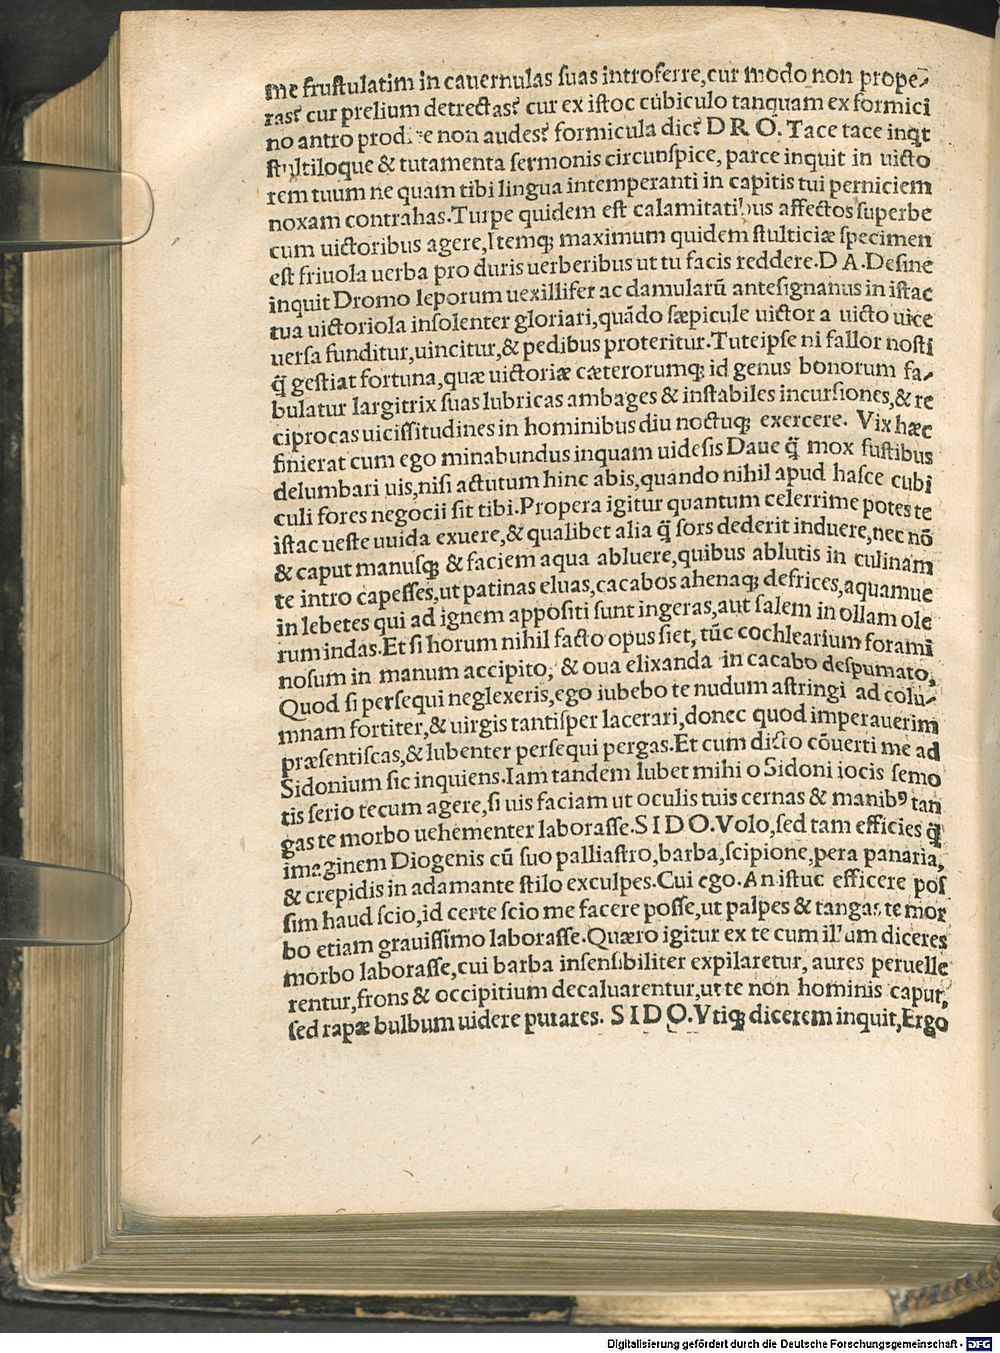 me fruſtulatim in cauernulas ſuas introferre,cur modo non prope⸗
ras? cur prelium detrectas? cur ex iſtoc cubiculo tanquam ex formici
no antro non audes? formicula dic? D R O. Tace tace inqt
ſtultiloque & tutamenta ſermonis circunſpice, parce inquit in uicto
rem tuum ne quam tibi lingua intemperanti in capitis tui perniciem
noxam contrahas.Turpe quidem eſt calamitatibus affectos ſuperbe
cum uictoribus agere,Itemq; maximum quidem ſtulticiæ ſpecimen
eſt friuola uerba pro duris uerberibus ut tu facis reddere.D A.Deſine
inquit Dromo leporum uexillifer ac damularū anteſignanus in iſtac
tua uictoriola inſolenter gloriari,quādo ſæpicule uictor a uicto uice
uerſa funditur,uincitur,& pedibus proteritur.Tuteipſe ni fallor noſti
q̄ geſtiat fortuna,quæ uictoriæ cæterorumq; id genus bonorum fa⸗
bulatur largitrix ſuas lubricas ambages & inſtabiles incurſiones,& re
ciprocas uiciſſitudines in hominibus diu noctuq; exercere. Vix hæc
finierat cum ego minabundus inquam uideſis Daue q̄ mox fuſtibus
delumbari uis,niſi actutum hinc abis,quando nihil apud haſce cubi
culi fores negocii ſit tibi.Propera igitur quantum celerrime potes te
iſtac ueſte uuida exuere,& qualibet alia q̄ ſors dederit induere,nec nō
& caput manuſq; & faciem aqua abluere,quibus ablutis in culinam
te intro capeſſes,ut patinas eluas,cacabos ahenaq; defrices,aquamue
in lebetes qui ad ignem appoſiti ſunt ingeras,aut ſalem in ollam ole
rum indas.Et ſi horum nihil facto opus ſiet, tūc cochlearium forami
noſum in manum accipito, & oua elixanda in cacabo deſpumato,
Quod ſi perſequi neglexeris,ego iubebo te nudum aſtringi ad colu⸗
mnam fortiter,& uirgis tantiſper lacerari,donec quod imperauerim
præſentiſcas,& lubenter perſequi pergas.Et cum dicto cōuerti me ad
Sidonium ſic inquiens.Iam tandem lubet mihi o Sidoni iocis ſemo
tis ſerio tecum agere,ſi uis faciam ut oculis tuis cernas & manibꝰ tan
gas te morbo uehementer laboraſſe.S I D O.Volo,ſed tam efficies q̄
imaginem Diogenis cū ſuo palliaſtro,barba,ſcipione,pera panaria,
& crepidis in adamante ſtilo exculpes.Cui ego.An iſtuc efficere poſ
ſim haud ſcio,id certe ſcio me facere poſſe,ut palpes & tangas te mor
bo etiam grauiſſimo laboraſſe.Quæro igitur ex te cum illum diceres
morbo laboraſſe,cui barba inſenſibiliter expilaretur, aures peruelle
rentur,frons & occipitium decaluarentur,ut te non hominis caput,
ſed rapæ bulbum uidere putares. S I D O.Vtiq; dicerem inquit,Ergo
Digitalisierung gefördert durch die Deutsche Forschungsgemeinschaft - DFG